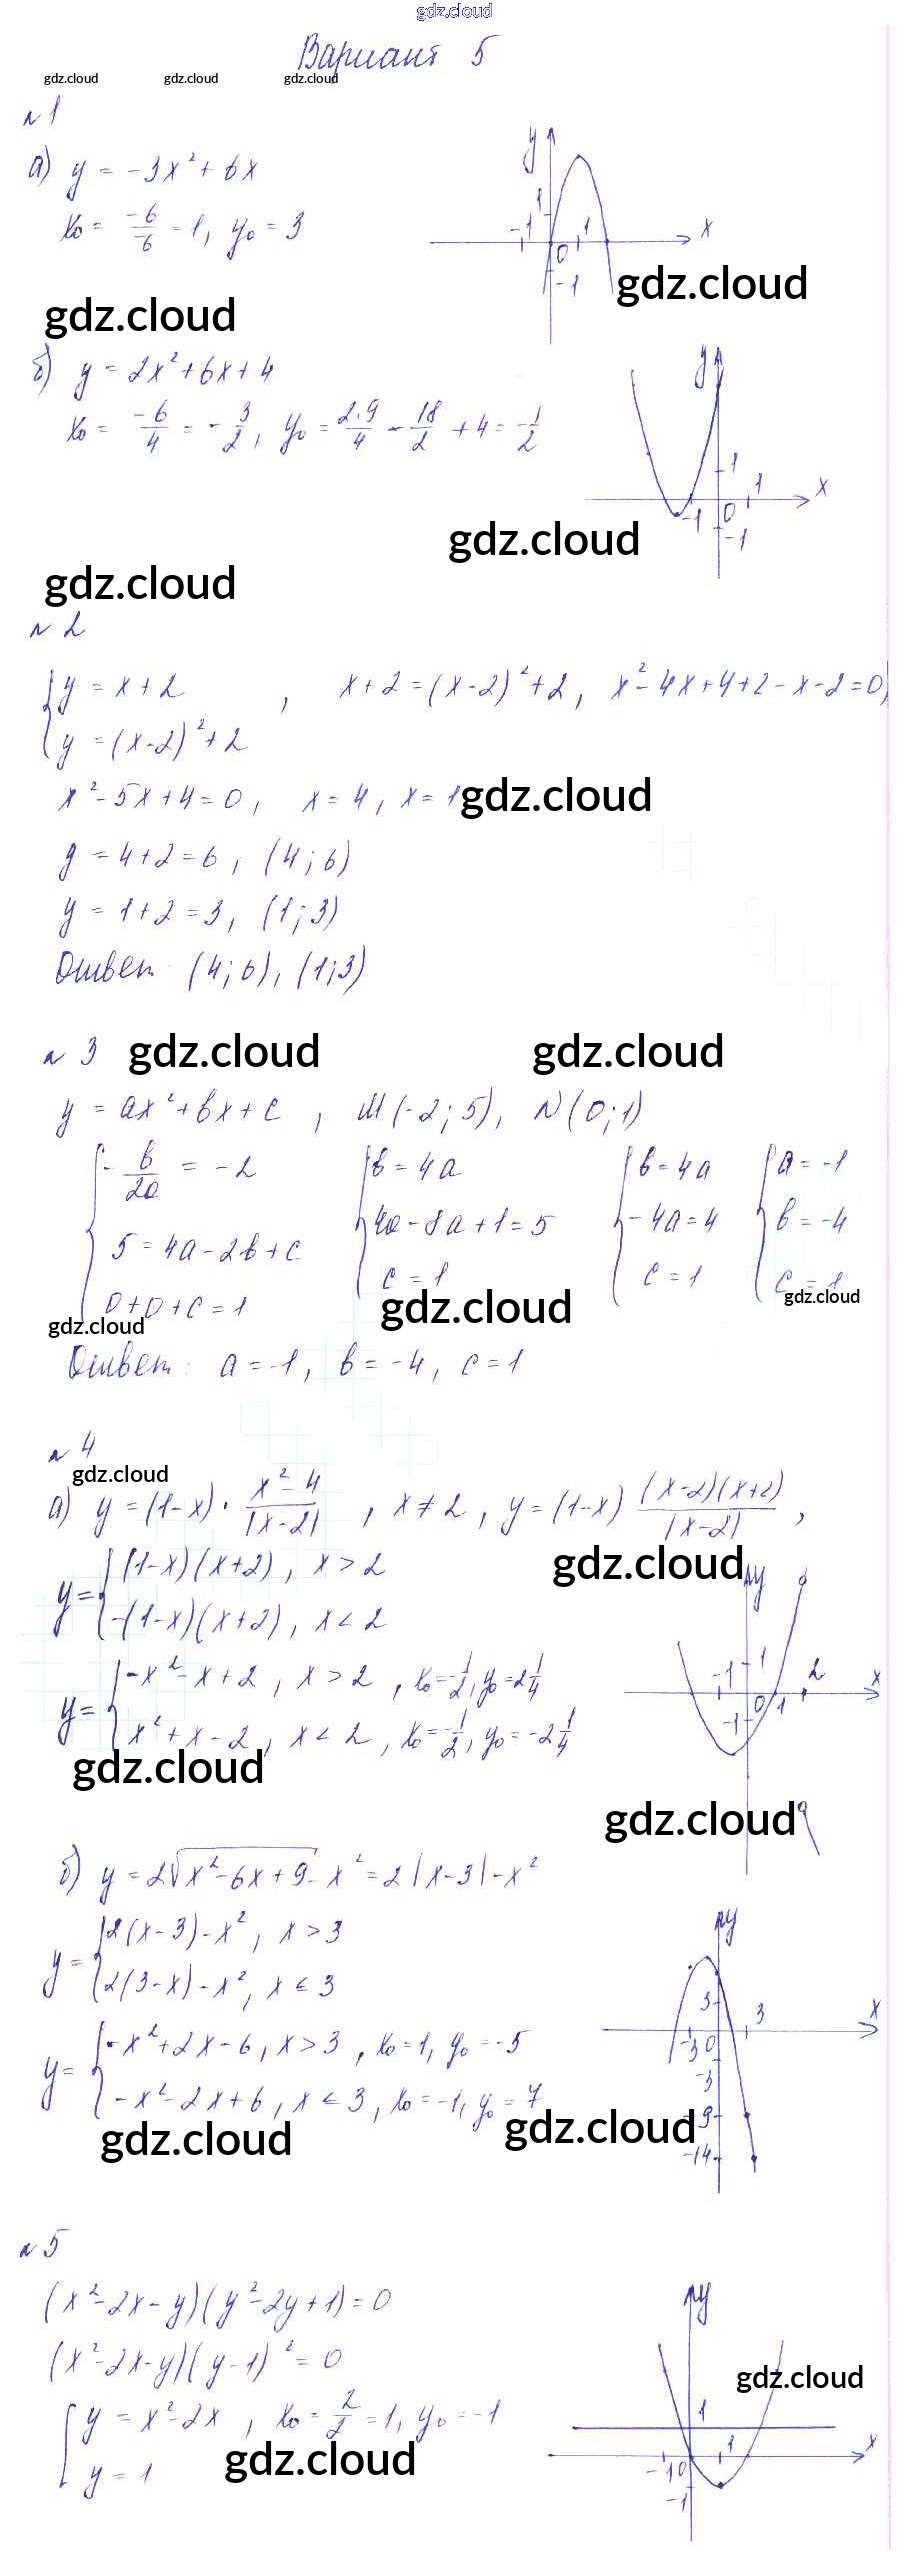 gdz.cloud
Вариант 5
gdz.cloud gdz.cloud gdz.cloud
№1
а) y = -3x² + 6x
x₀ = -6/-6 = 1, y₀ = 3
y 1 -1 0 1 x -1
gdz.cloud
gdz.cloud
б) y = 2x² + 6x + 4
x₀ = -6/4 = -3/2, y₀ = 2·9/4 - 18/2 + 4 = -1/2
y 1 1 x -1 0 -1
gdz.cloud
gdz.cloud
№2
{y = x+2 , x+2 = (x-2)²+2, x²-4x+4+2-x-2=0,
y = (x-2)²+2
x²-5x+4=0, x=4, x=1
gdz.cloud
y = 4+2=6, (4;6)
y = 1+2=3, (1;3)
Ответ: (4;6), (1;3)
№3
gdz.cloud gdz.cloud
y = ax²+bx+c, M(-2;5), N(0;1)
{-b/2a = -2 {b=4a {b=4a {a=-1
5=4a-2b+c 4a-8a+1=5 -4a=4 b=-4
0+0+c=1 c=1 c=1 c=1
gdz.cloud
gdz.cloud
gdz.cloud
Ответ: a=-1, b=-4, c=1
№4
gdz.cloud
а) y=(1-x)· x²-4/|x-2| , x≠2, y=(1-x) (x-2)(x+2)/|x-2| ,
gdz.cloud
y={(1-x)(x+2), x>2
-(1-x)(x+2), x<2
y={-x²-x+2, x>2, x₀=-1/2, y₀=2 1/4
x²+x-2, x<2, x₀=-1/2, y₀=-2 1/4
y -1 1 2 x 0 1 -1
gdz.cloud
gdz.cloud
б) y=2√x²-6x+9 - x²=2|x-3|-x²
y={2(x-3)-x², x>3
2(3-x)-x², x≤3
y={-x²+2x-6, x>3, x₀=1, y₀=-5
-x²-2x+6, x≤3, x₀=-1, y₀=7
y 3 3 x -3 0 -3 -9 -14
gdz.cloud
gdz.cloud
№5
(x²-2x-y)(y²-2y+1)=0
(x²-2x-y)(y-1)²=0
[y=x²-2x, x₀=2/2=1, y₀=-1
y=1
y 1 1 x -1 0 -1
gdz.cloud
gdz.cloud